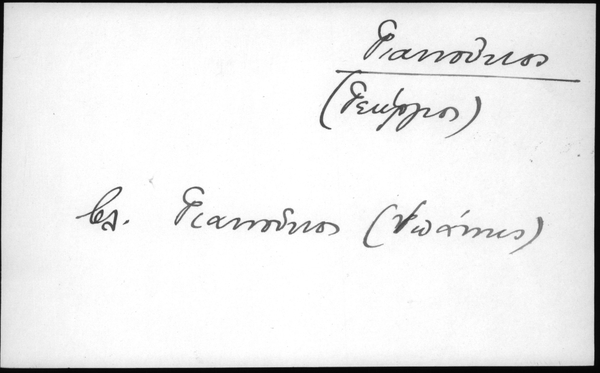 Γιαννούκος
(Γεώργιος)
βλ. Γιαννούκος (Ἰωάννης)